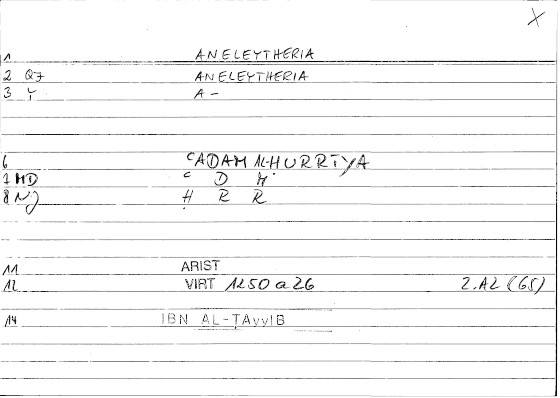 X
1 ANELEYTHERIA
2 QJ ANELEYTHERIA
3 Y A -
6 ʿADAM AL-HURRIYA
7 MD ʿ D M
8 NJ Ḥ R R
11 ARIST
12 VIRT 1250 a 26 2.A2 (65)
14 IBN AL-ṬAyyIB